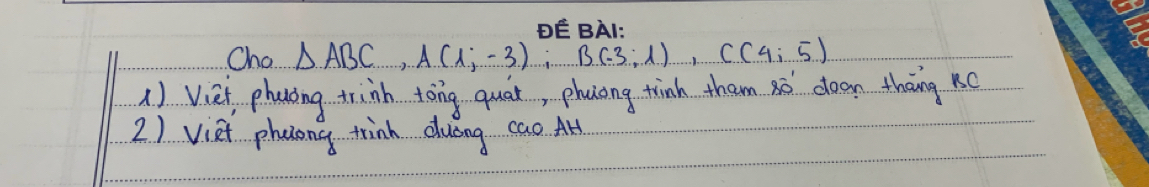 ĐỀ BÀI:
Cho Δ ABC, A(1; -3); B(-3; 1), C(4; 5)
1) Viết phương trình tổng quát, phương trình tham số đoạn thẳng BC
2) Viết phương trình đường cao AH